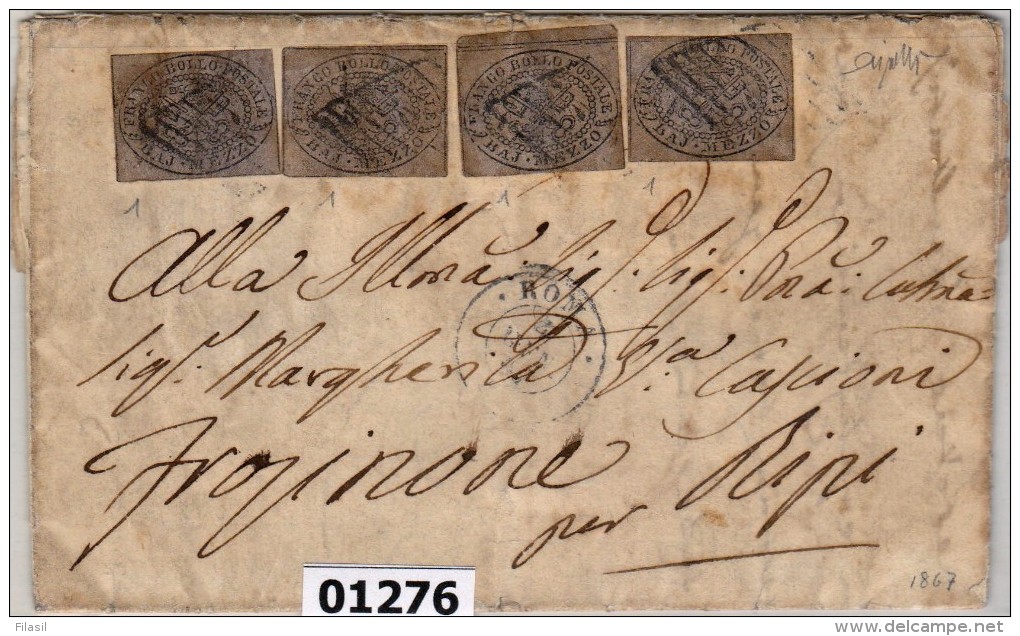 FRANCO BOLLO POSTALE
BAJ · MEZZO
FRANCO BOLLO POSTALE
BAJ · MEZZO
FRANCO BOLLO POSTALE
BAJ · MEZZO
FRANCO BOLLO POSTALE
BAJ · MEZZO
1 1 1 1
Alla Illma. Sig. Sig. Pna.
ROMA
Sig. Margherita Va. Cascioni
Frosinone
per Ripi
1867
01276
Filasil
delcampe.net